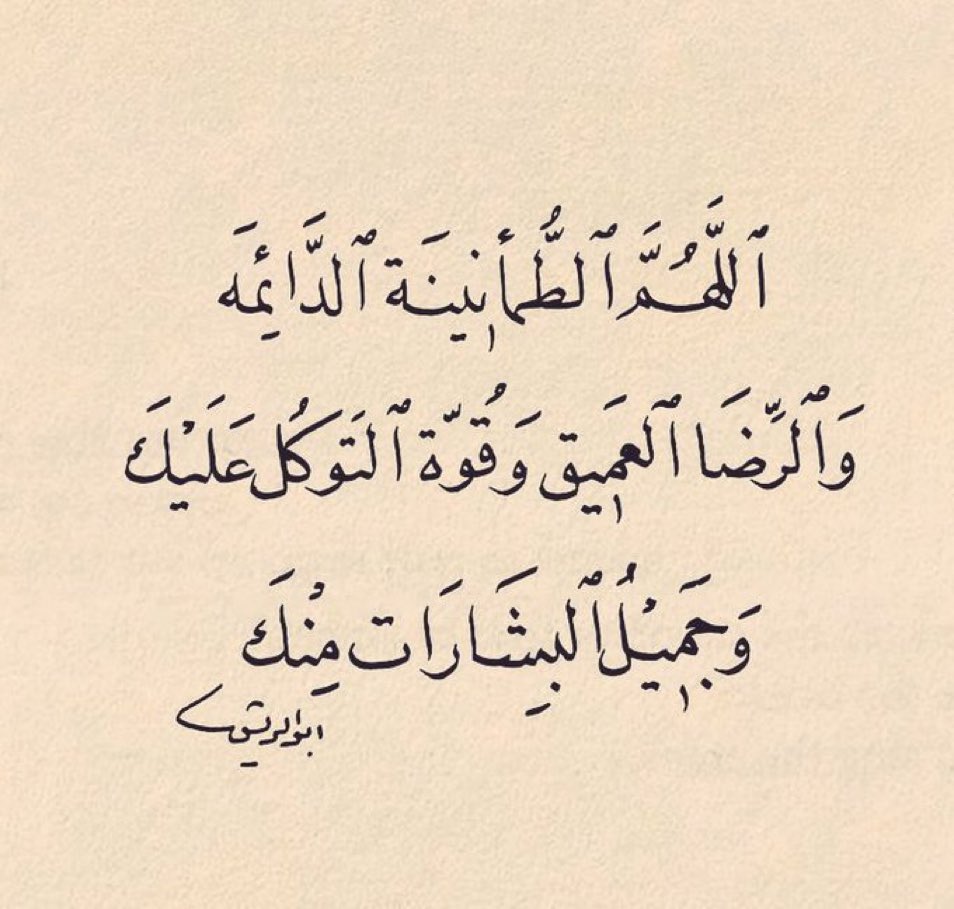 ٱللَّهُمَّ ٱلطُّمأنِينَة ٱلدَّائِمَه
وَٱلرِّضَا ٱلعَمِيق وَقُوّة ٱلتَوَكُل عَلَيْكَ
وَجَمِيْلُ ٱلبِشَارَات مِنْكَ